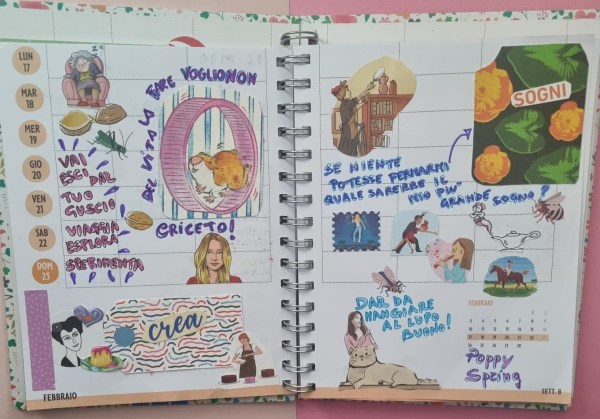 LUN
17
MAR
18
MER
19
GIO
20
VEN
21
SAB
22
DOM
23
NON VOGLIO FARE
LA VITA DEL
CRICETO!
VAI
ESCI DAL
TUO
GUSCIO
VIAGGIA
ESPLORA
SPERIMENTA
crea
FEBBRAIO
SOGNI
SE NIENTE
POTESSE FERMARMI
QUALE SAREBBE IL
MIO PIU'
GRANDE SOGNO?
DAR DA
MANGIARE
AL LUPO
BUONO!
FEBBRAIO
Poppy
Spring
SETT. 8